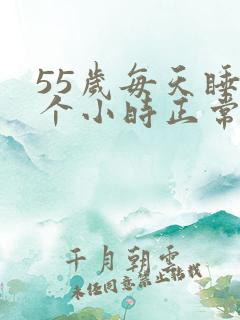 55岁每天睡
个小时正常
千月朝雲
未经同意禁止转载